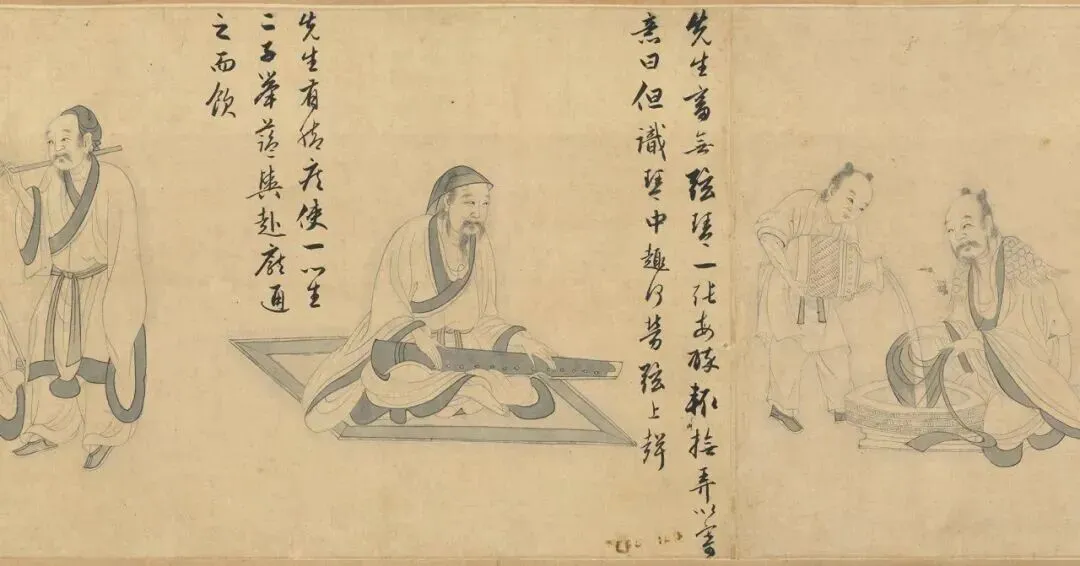 先生畜無弦琴一張每醉輒撫弄以寄
意曰但識琴中趣何勞弦上聲
先生有脚疾使一門生
二子舉藍輿赴龐通
之而飲